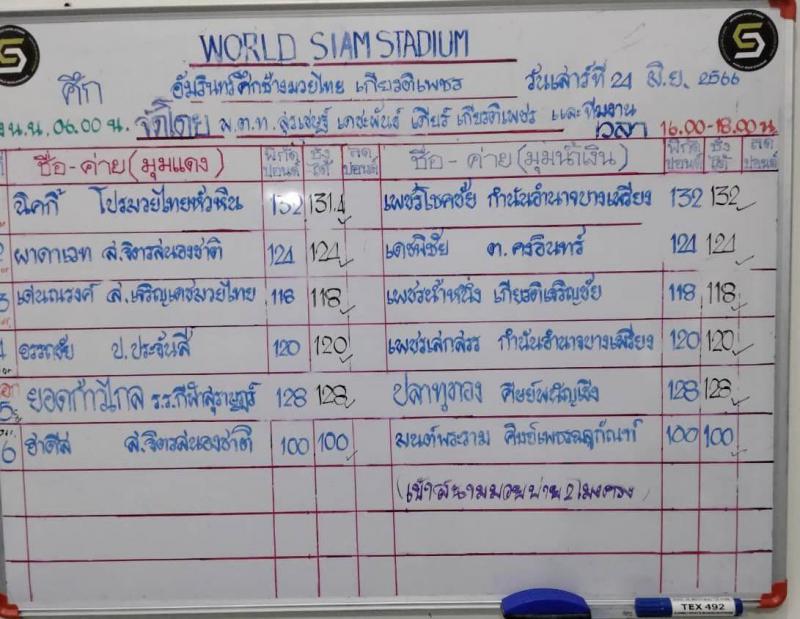 WORLD SIAM STADIUM
ศึก อัมรินทร์ศึกช้างมวยไทย เกียรติเพชร วันเสาร์ที่ 24 มิ.ย. 2566
ช.น.น. 06.00 น. จัดโดย พ.ต.ท. สุรเชษฐ์ เดชะพันธ์ เสียร์ เกียรติเพชร และทีมงาน เวลา 16.00-18.00 น.
ชื่อ - ค่าย (มุมแดง) พิกัด ปอนด์ ชั่งได้ ลดปอนด์ ชื่อ - ค่าย (มุมน้ำเงิน) พิกัด ปอนด์ ชั่งได้ ลดปอนด์
นิคกี้ โปรมวยไทยหัวหิน 132 131.4 เพชรโชคชัย กำนันอำนาจบางเหรียง 132 132
ผาดาเวท ส.จิตรสนองชาติ 124 124 เดชพิชัย ต.คงอินทร์ 124 124
3 เด่นณรงค์ ส.เจริญเดชมวยไทย 118 118 เพชรน้ำหนึ่ง เกียรติเจริญชัย 118 118
4 อรรถชัย ป.ประจันสี 120 120 เพชรเสกสรร กำนันอำนาจบางเหรียง 120 120
5 ยอดก้าวไกล ร.ร.กีฬาสุราษฎร์ 128 128 ปลาทูทอง ศิษย์ 128 128
6 ฮาดีส ส.จิตรสนองชาติ 100 100 มนต์พระราม ศิษย์เพชร 100 100
(เข้าสนามมวยบ่าย 2 โมงตรง)
TEX 492